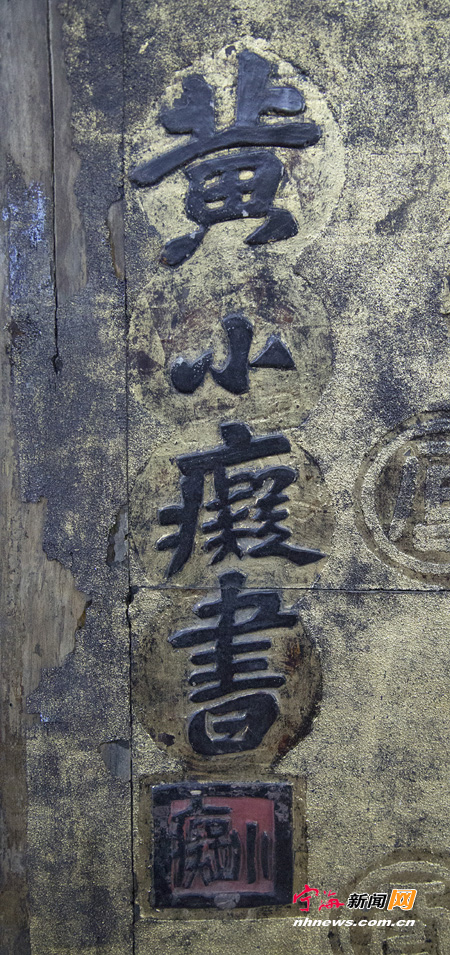 黄小癡書
小癡
宁海新闻网
nhnews.com.cn